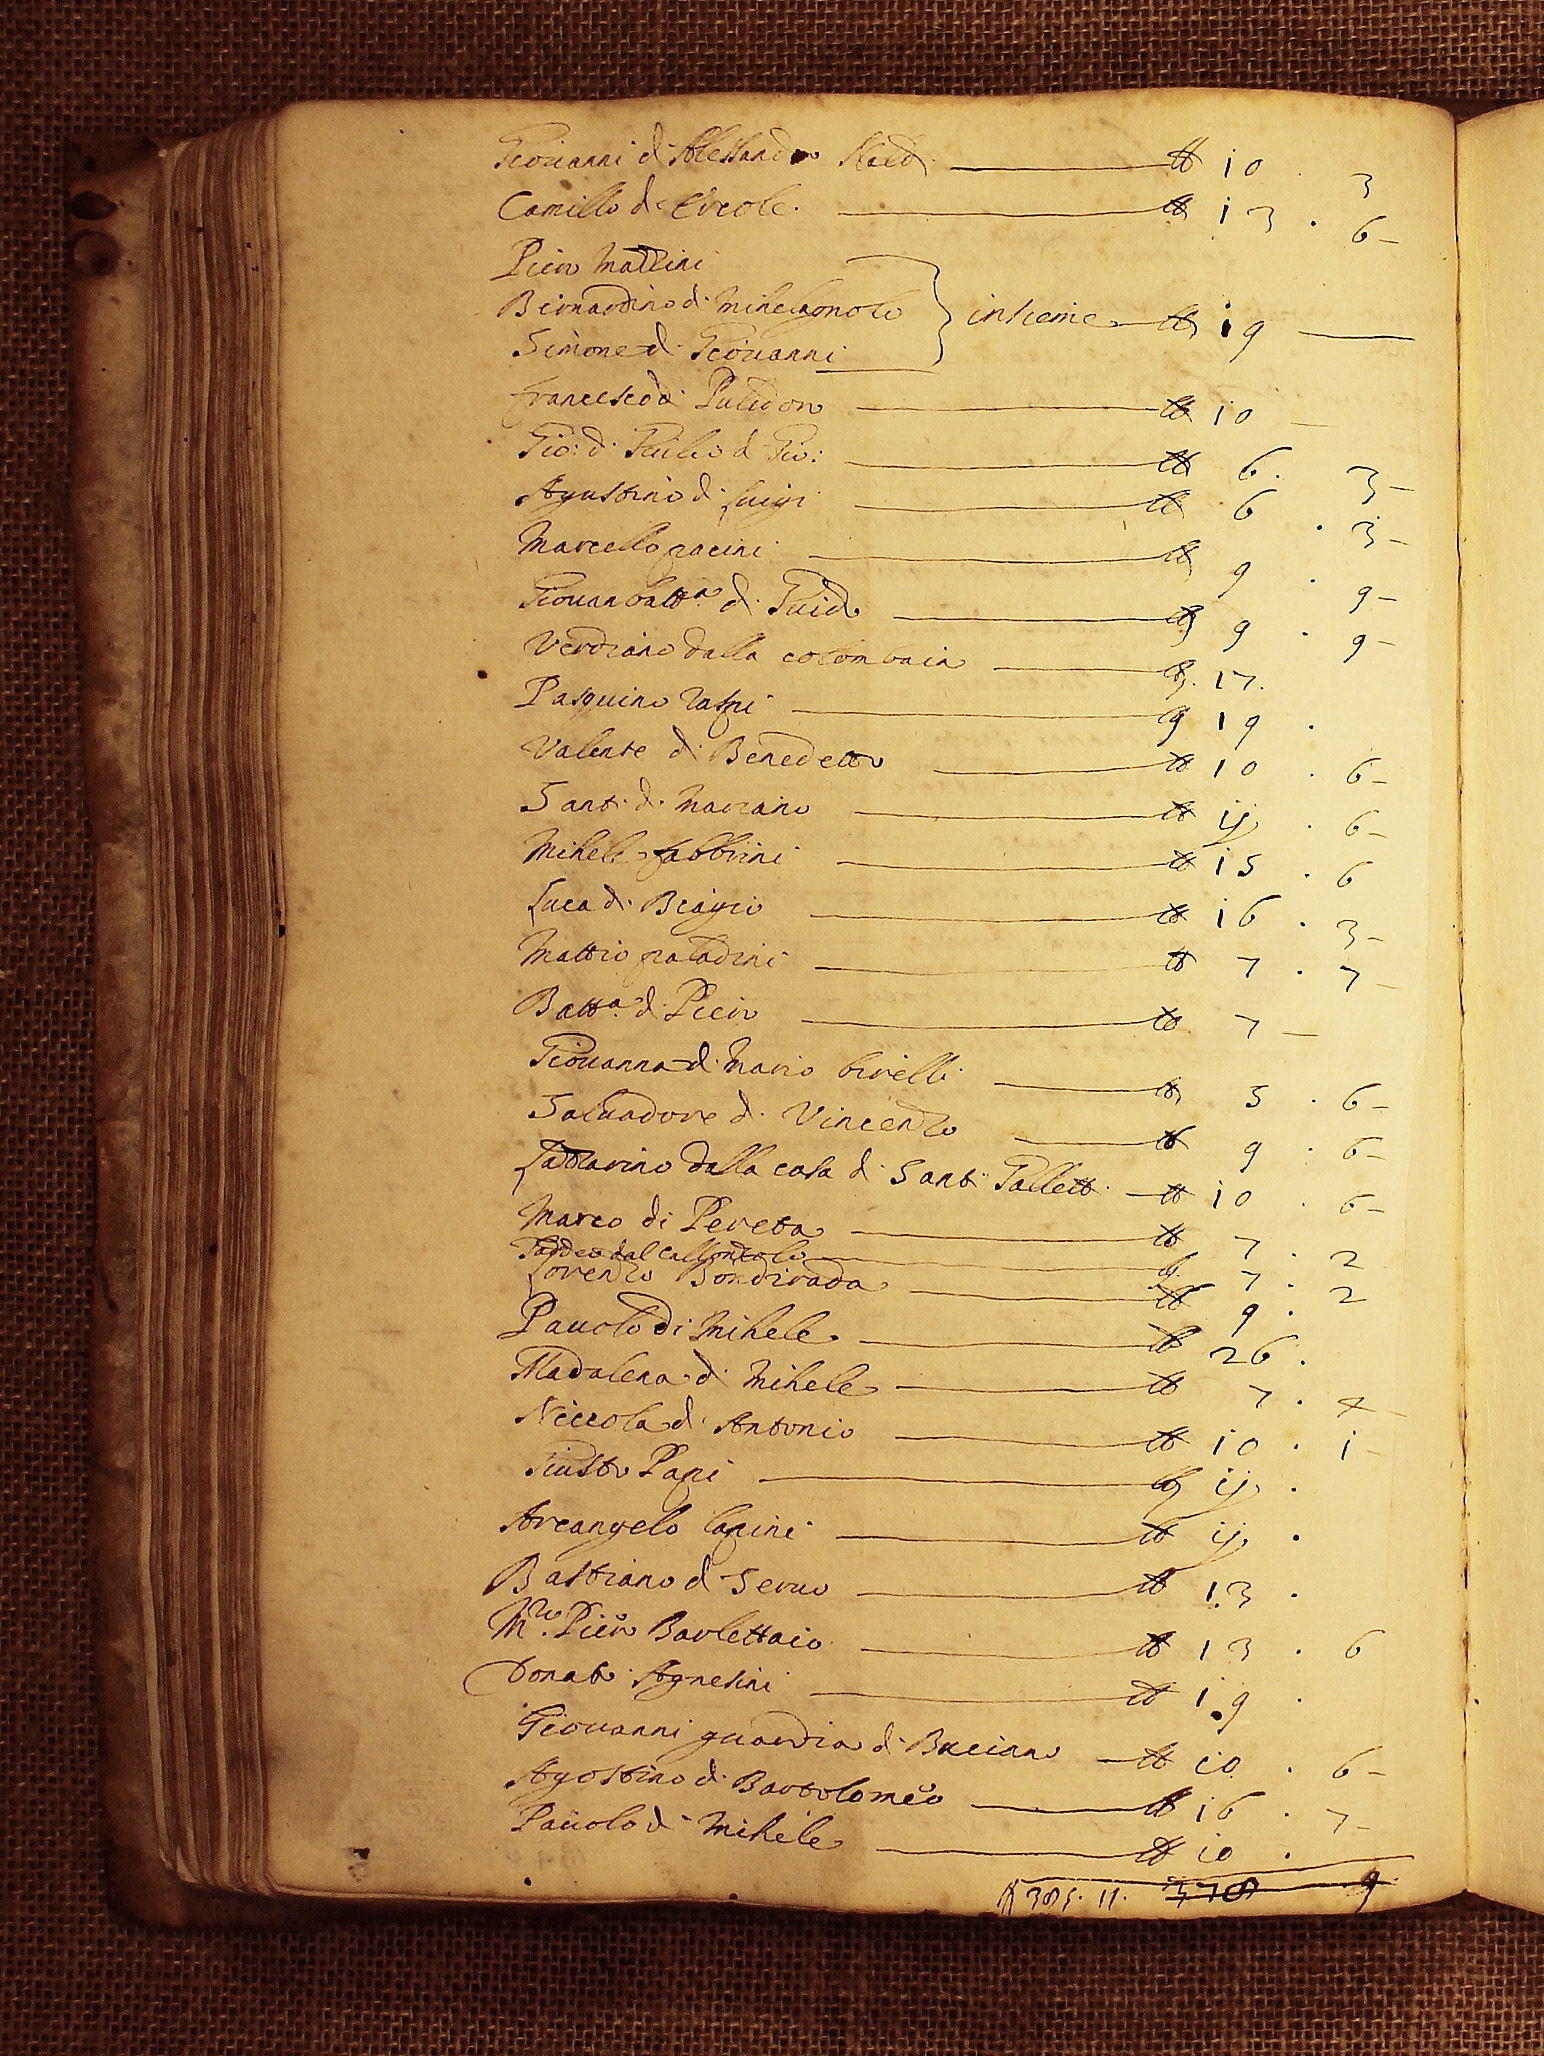 Giovanni d. Alessandro ℔ 10 . 3
Camillo d. Ercole. ℔ 13 . 6 –
Piero Mazzini
Bernardino d. Michelagnolo } insieme ℔ 19 —
Simone d. Giovanni
Francesco d. Pulidoro ℔ 10 –
Gio: d. Giulio d Gio: ℔ 6 . 3 –
Agustino d. Luigi ℔ 6 . 3 –
Marcello pacini ℔ 9 . 9 –
Giovanbatt.a d. Guido ℔ 9 . 9 –
Verdiano dalla colombaia ℔ 17.
Pasquino ℔ 19 .
Valente d. Benedetto ℔ 10 . 6 –
Santi d. Mariano ℔ ij . 6 –
Mihele fabbrini ℔ 15 . 6
Luca d. Biagio ℔ 16 . 3 –
Mattio paladini ℔ 7 . 7 –
Batt.a d. Piero ℔ 7 –
Giovanna d. Mario birelli ℔ 5 . 6 –
Salvadore d. Vincenzo ℔ 9 . 6 –
Lazzarino dalla casa d. Santi Galletti ℔ 10 . 6 –
Marco di Pereta ℔ 7 . 2
Taddeo dal ℔ 7 . 2
Lorenzo Bondirada ℔ 9 .
Pauolo di Mihele ℔ 26 .
Madalena d. Mihele ℔ 7 . 4 –
Niccola d. Antonio ℔ 10 . 1 –
Giusto Papi ℔ ij .
Arcangelo lapini ℔ ij .
Bastiano d. Servo ℔ 13 .
M.ro Piero Barlettaio ℔ 13 . 6
Donato Agnesini ℔ 19 .
Giovanni guardia d. Buciano ℔ 10 . 6 –
Agostino d. Bartolomeo ℔ 16 . 7 –
Pauolo d. Mihele ℔ 10 .
℔ 385. 11. 378 9